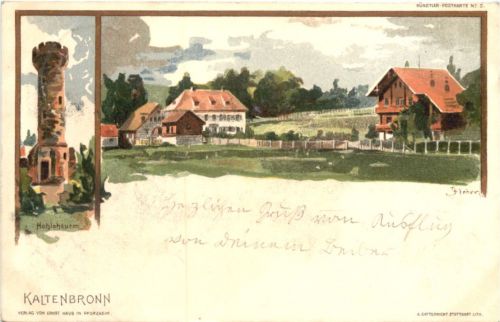 KÜNSTLER-POSTKARTE Nº 2.
Hohlohturm
Herzlichen Gruß vom Ausflug
von deinem
KALTENBRONN
VERLAG VON ERNST HAUG IN PFORZHEIM.
STUTTGART LITH.